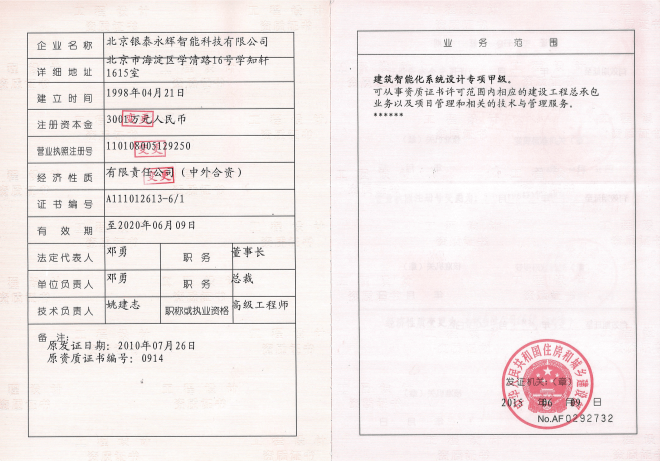 企业名称 北京银泰永辉智能科技有限公司
详细地址 北京市海淀区学清路16号学知轩
1615室
建立时间 1998年04月21日
注册资本金 3001万元人民币
变更
营业执照注册号 110108005129250
变更
经济性质 有限责任公司(中外合资)
变更
证书编号 A111012613-6/1
有效期 至2020年06月09日
法定代表人 邓勇 职务 董事长
单位负责人 邓勇 职务 总裁
技术负责人 姚建志 职称或执业资格 高级工程师
备注:
原发证日期: 2010年07月26日
原资质证书编号: 0914
业务范围
建筑智能化系统设计专项甲级。
可从事资质证书许可范围内相应的建设工程总承包
业务以及项目管理和相关的技术与管理服务。
******
中华人民共和国住房和城乡建设部
发证机关:(章)
2015年06月09日
No.AF0292732